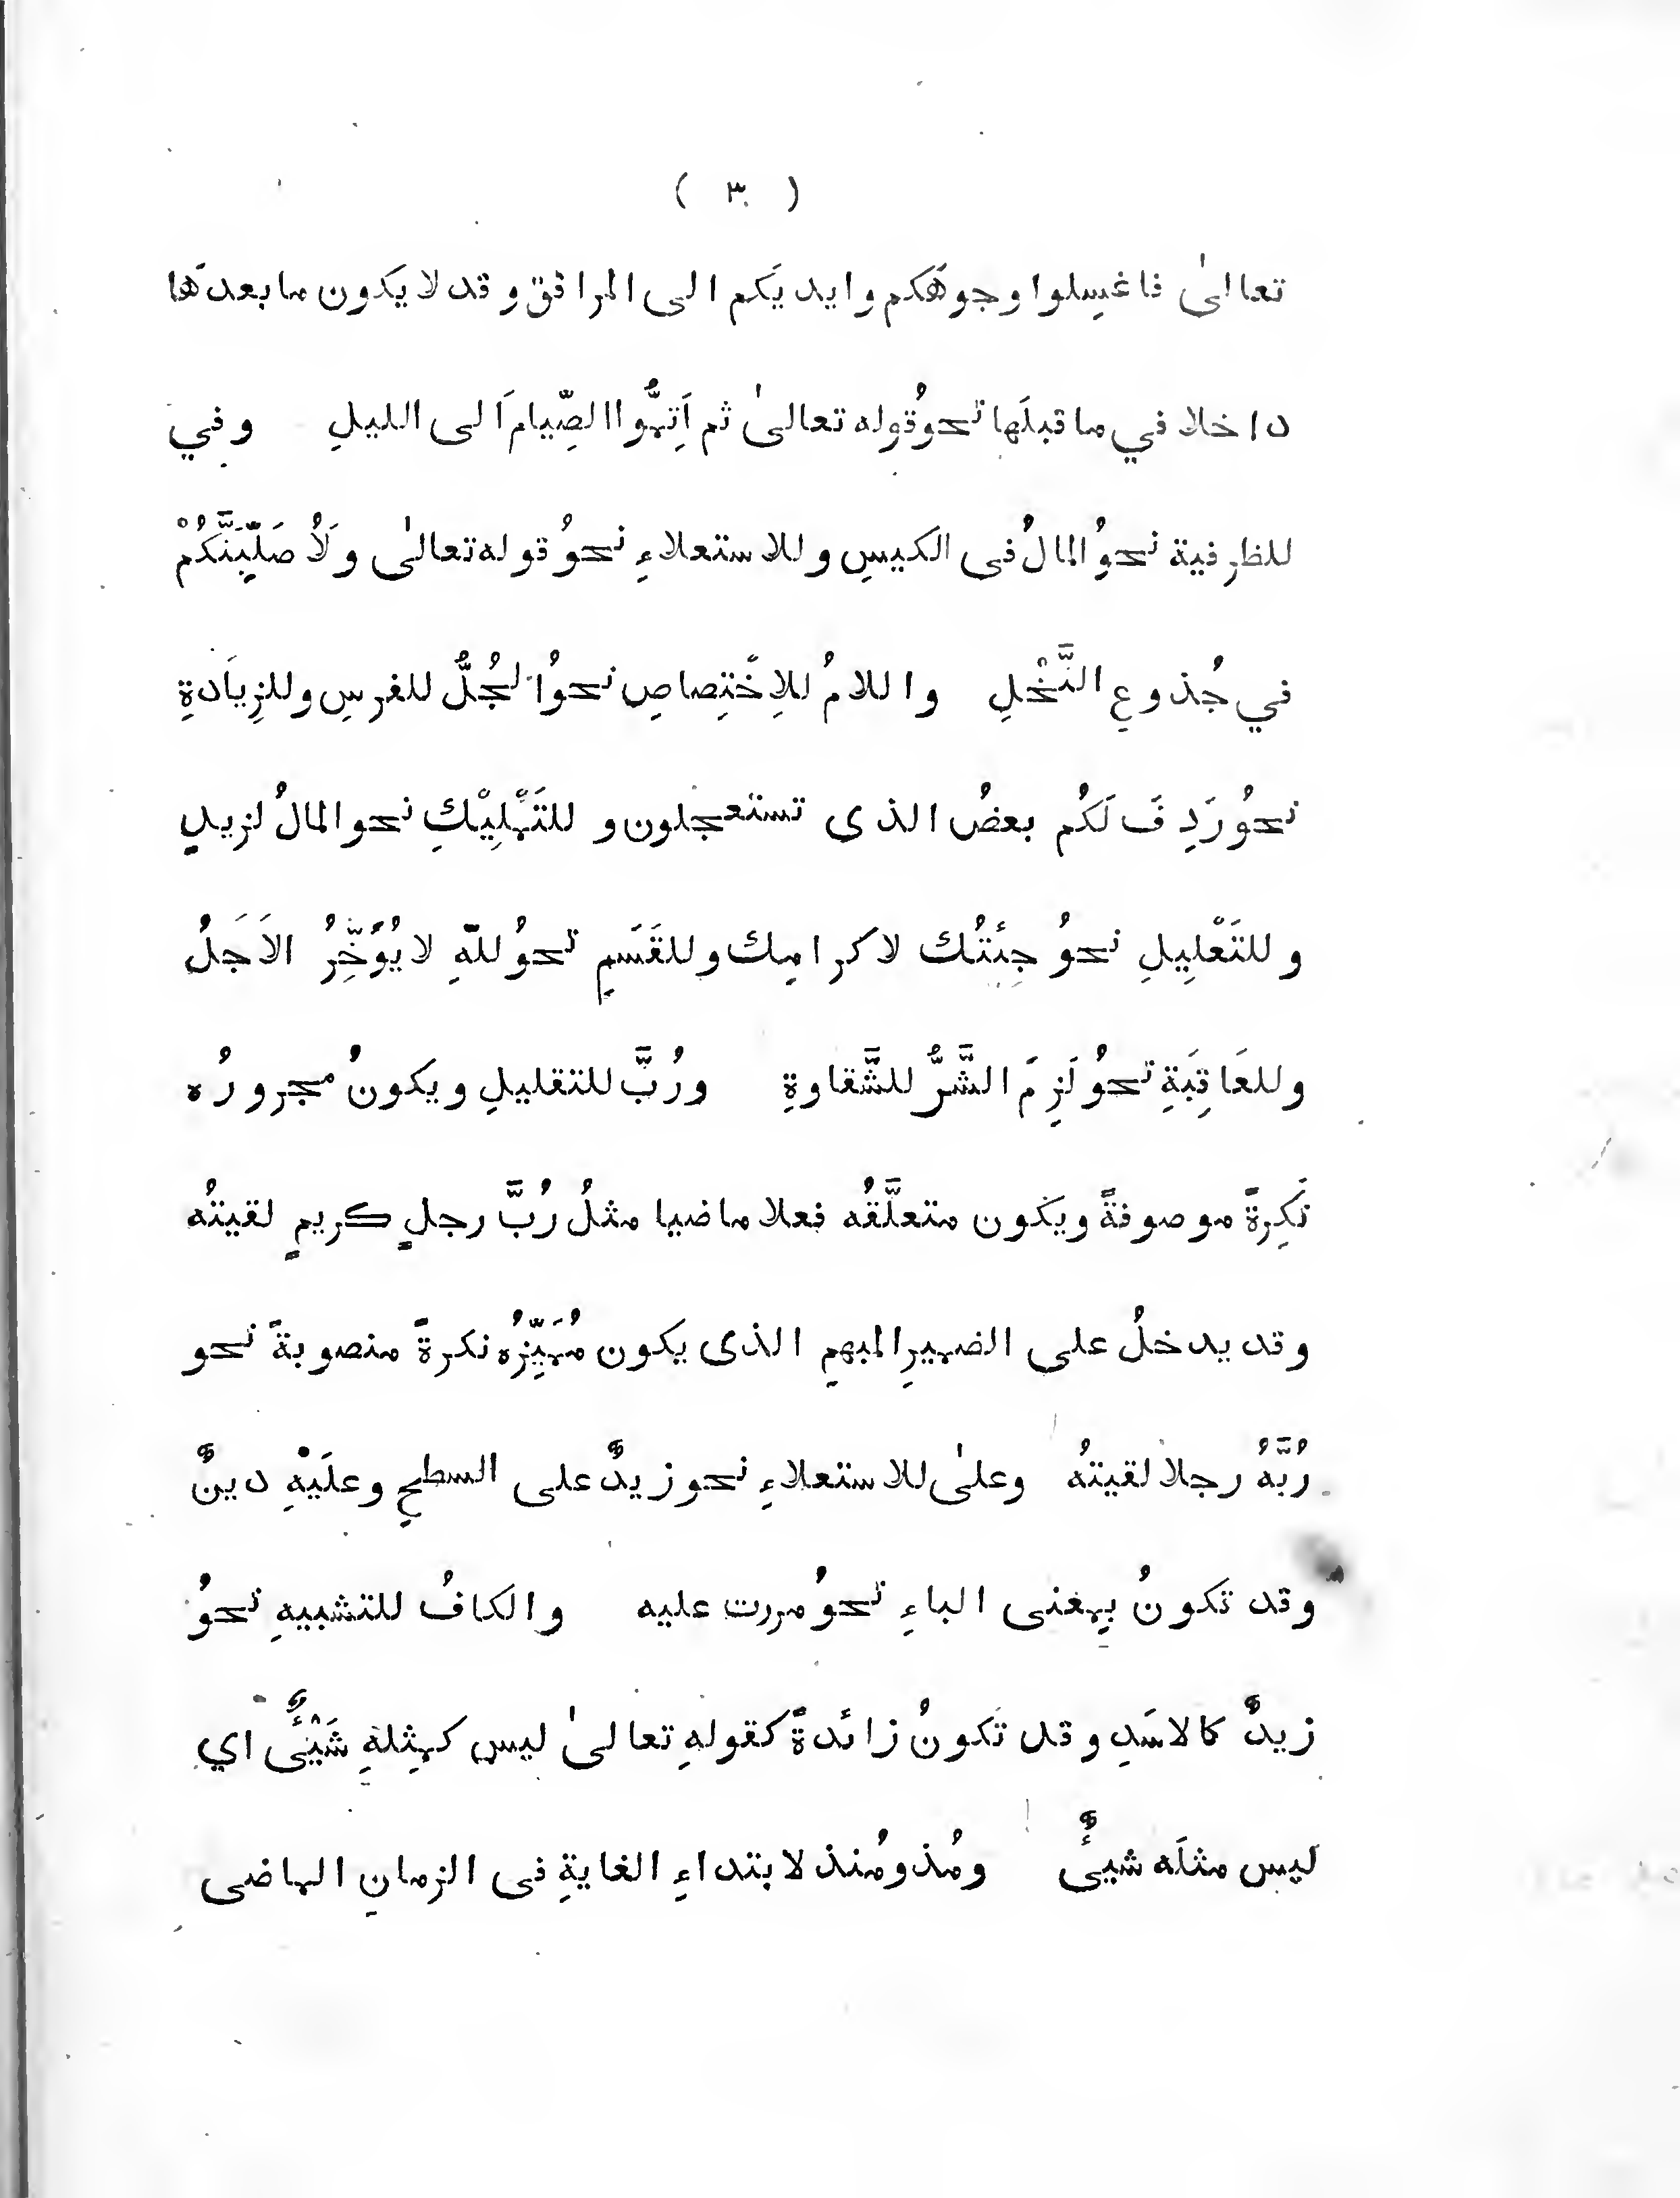 ( ٣ )
تعالىٰ فاغسِلوا وجوهَكم وايديَكم الى المرافق وقد لا يكون ما بعدَها
داخلا في ما قبلَها نحوُ قوله تعالىٰ ثم اَتِمُّوا الصِّيامَ الى الليلِ وفي
للظرفية نحوُ المالُ فى الكيسِ وللاستعلاءِ نحوُ قوله تعالىٰ ولَاُصَلِّبَنَّكُمْ
في جُذوعِ النَّخْلِ واللامُ للاِخْتِصاصِ نحوُ الجُلُّ للفرسِ وللزِيَادةِ
نحوُ رَدِفَ لَكُم بعضُ الذى تستعجلون و للتَمْلِيْكِ نحو المالُ لزيدٍ
وللتَعْلِيلِ نحوُ جِئتُك لاكرامِك وللقَسَمِ نحوُ للّٰهِ لا يُؤَخَّرُ الاَجَلُ
وللعَاقِبَةِ نحوُ لَزِمَ الشَّرُّ للشَّقاوةِ ورُبَّ للتقليلِ ويكونُ مجرورُه
نَكِرةً موصوفةً ويكون متعلَّقُه فعلا ماضيا مثلُ رُبَّ رجلٍ كريمٍ لقيتُه
وقد يدخلُ على الضميرِ المبهمِ الذى يكون مُمَيِّزُه نكرةً منصوبةً نحو
رُبَّهُ رجلا لقيتُه وعلىٰ للاستعلاءِ نحو زيدٌ على السطحِ وعلَيْهِ دينٌ
وقد تكونُ بِمعنى الباءِ نحوُ مررت عليه والكافُ للتشبيهِ نحوُ
زيدٌ كالاسَدِ وقد تَكونُ زائدةً كقولهِ تعالىٰ ليس كمِثلهِ شَيْئٌ اي
ليس مثلَه شيئٌ ومُذ ومُنذ لابتداءِ الغايةِ فى الزمانِ الماضى